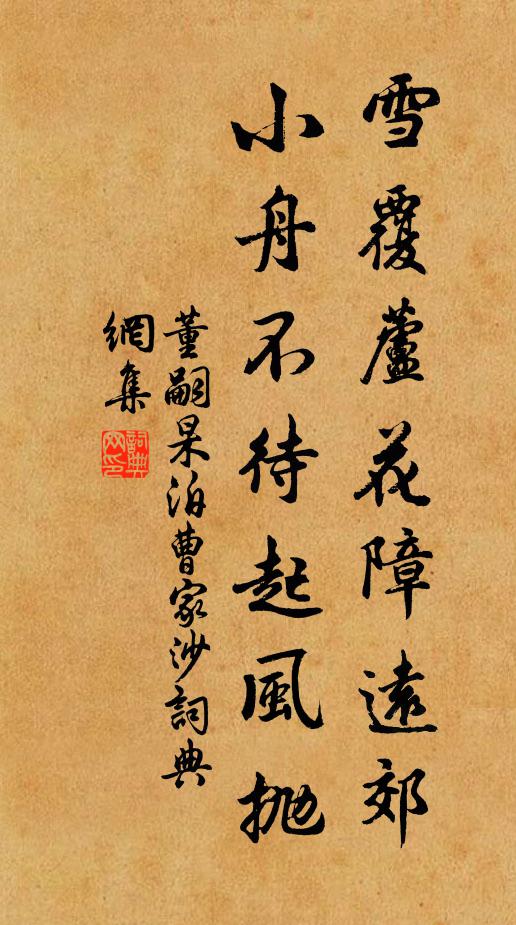 雪覆蘆花障遠郊
小舟不待起風拋
董嗣杲泊曹家沙詞典
網集
詞典網印